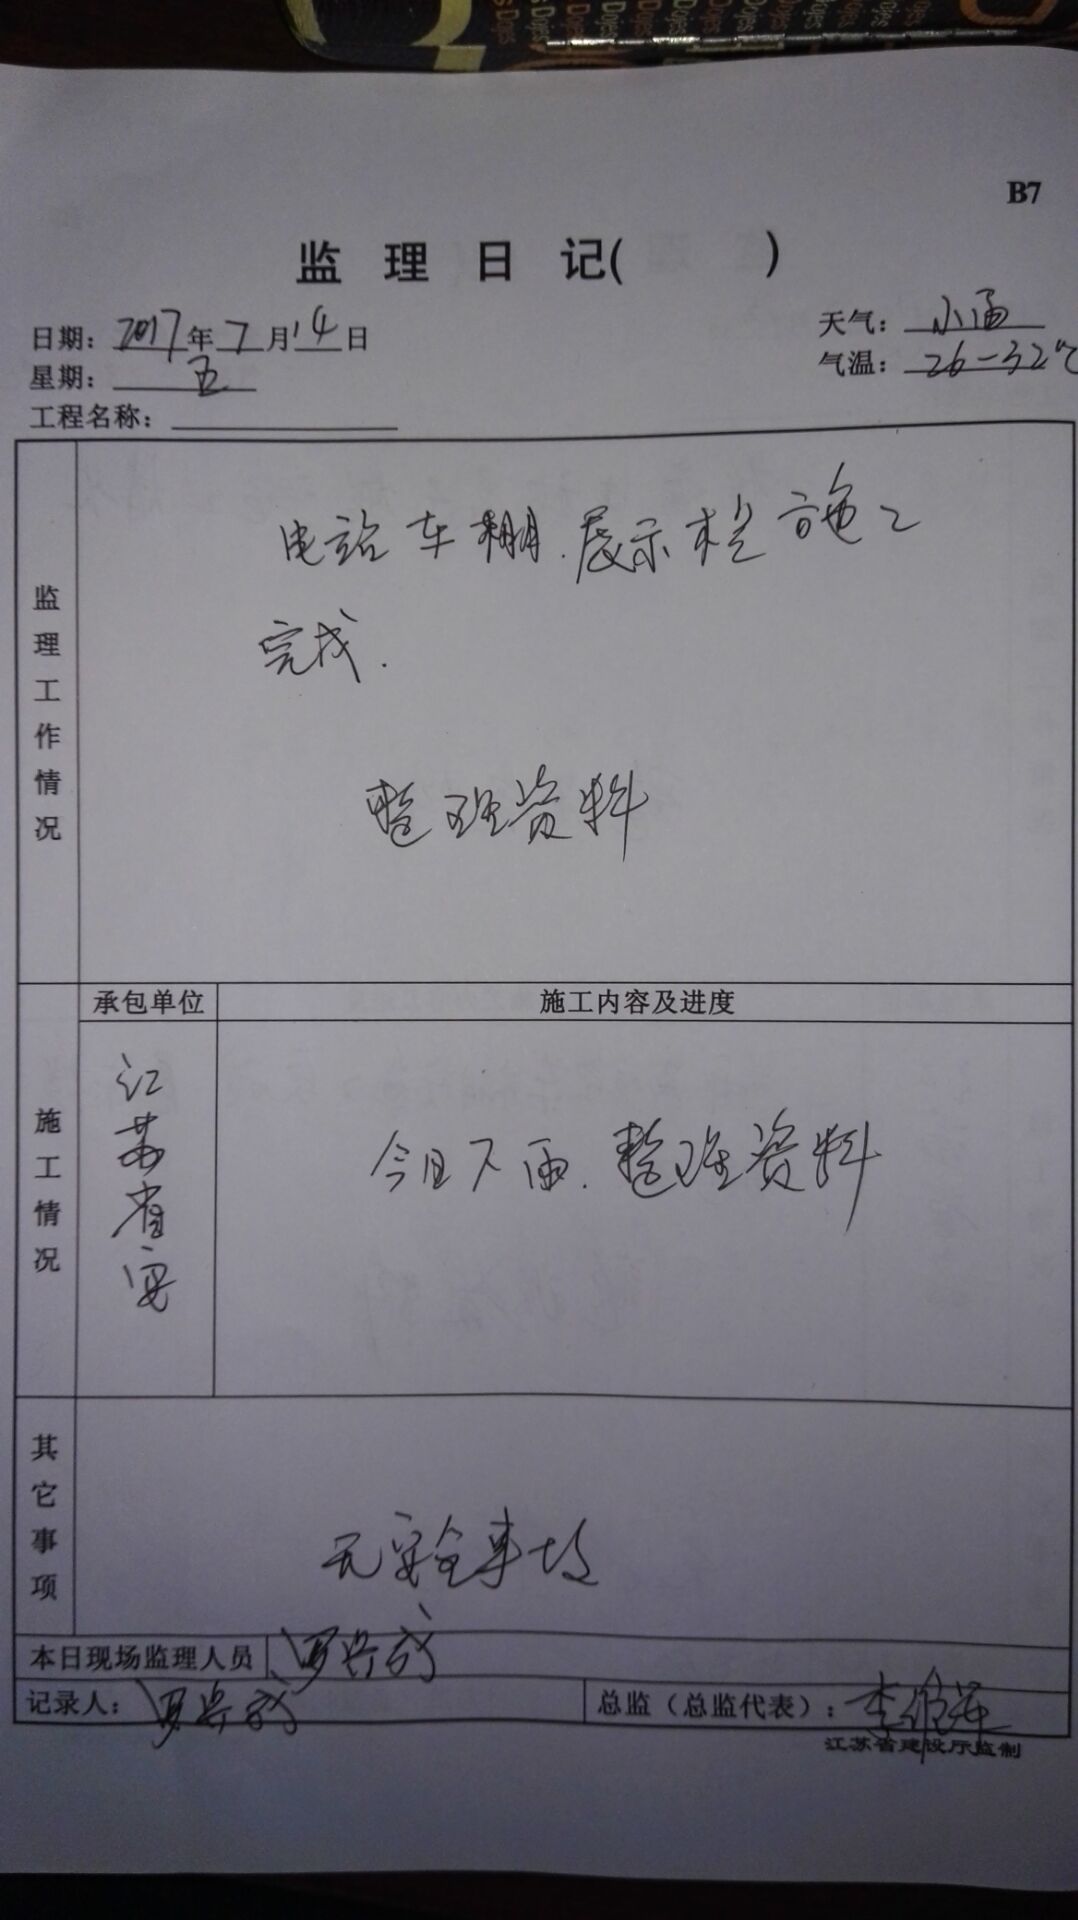 B7
监 理 日 记( )
日期: 2017年7月14日
天气: 小雨
星期: 五
气温: 26-32℃
工程名称:
监理工作情况
电站车棚.展示栏施工
完成.
整理资料
承包单位
施工内容及进度
施工情况
江苏省安
今日下雨.整理资料
其它事项
无安全事故
本日现场监理人员
记录人:
总监(总监代表):
江苏省建设厅监制